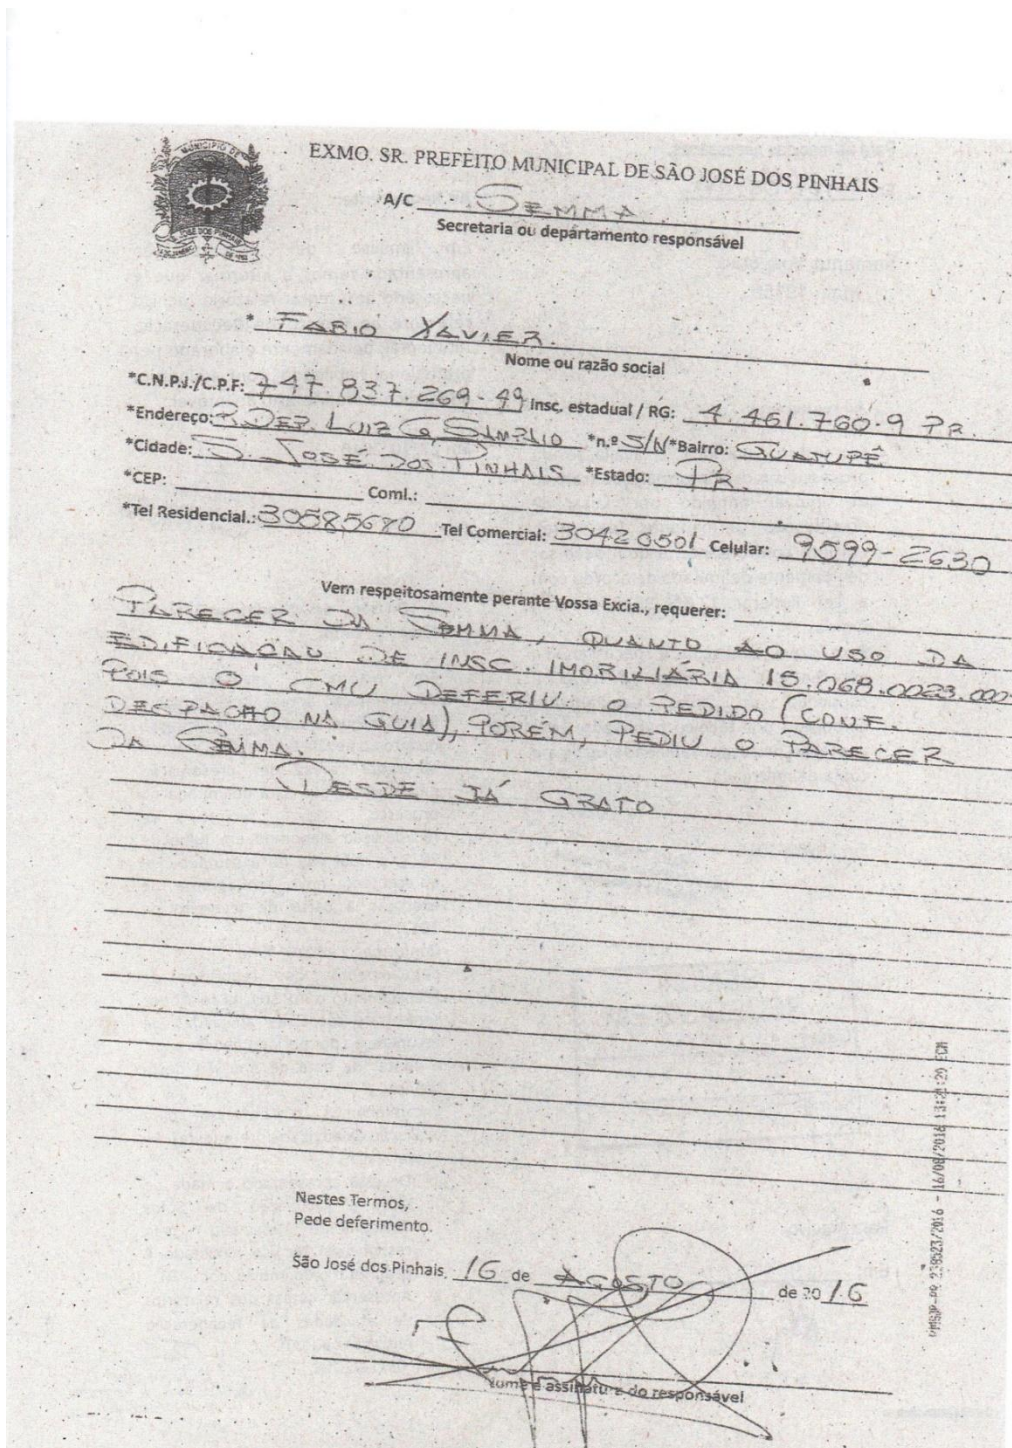 MUNICIPIO DE
SÃO JOSÉ DOS PINHAIS
EXMO. SR. PREFEITO MUNICIPAL DE SÃO JOSÉ DOS PINHAIS
A/C SEMMA
Secretaria ou departamento responsável
* FABIO XAVIER.
Nome ou razão social
*C.N.P.J./C.P.F: 747.837.269-49 Insc. estadual / RG: 4.461.760-9 PR.
*Endereço: R. DEP. LUIZ G. SAMPAIO *n.º S/N *Bairro: GUATUPÊ
*Cidade: S. JOSÉ DOS PINHAIS *Estado: PR.
*CEP: Coml.:
*Tel Residencial.: 30585680 Tel Comercial: 30420501 Celular: 9599-2630
Vem respeitosamente perante Vossa Excia., requerer:
PARECER DA SEMMA, QUANTO AO USO DA
EDIFICACAU DE INSC. IMOBILIÁRIA 15.068.0023.000
POIS O CMU DEFERIU O PEDIDO (CONF.
DESPACHO NA GUIA), PORÉM, PEDIU O PARECER
DA SEMMA.
DESDE JÁ GRATO
Nestes Termos,
Pede deferimento.
São José dos Pinhais, 16 de AGOSTO de 2016
Nome e assinatura do responsável
PMSJP-PR 238523/2016 - 16/08/2016 13:21:29 ECM